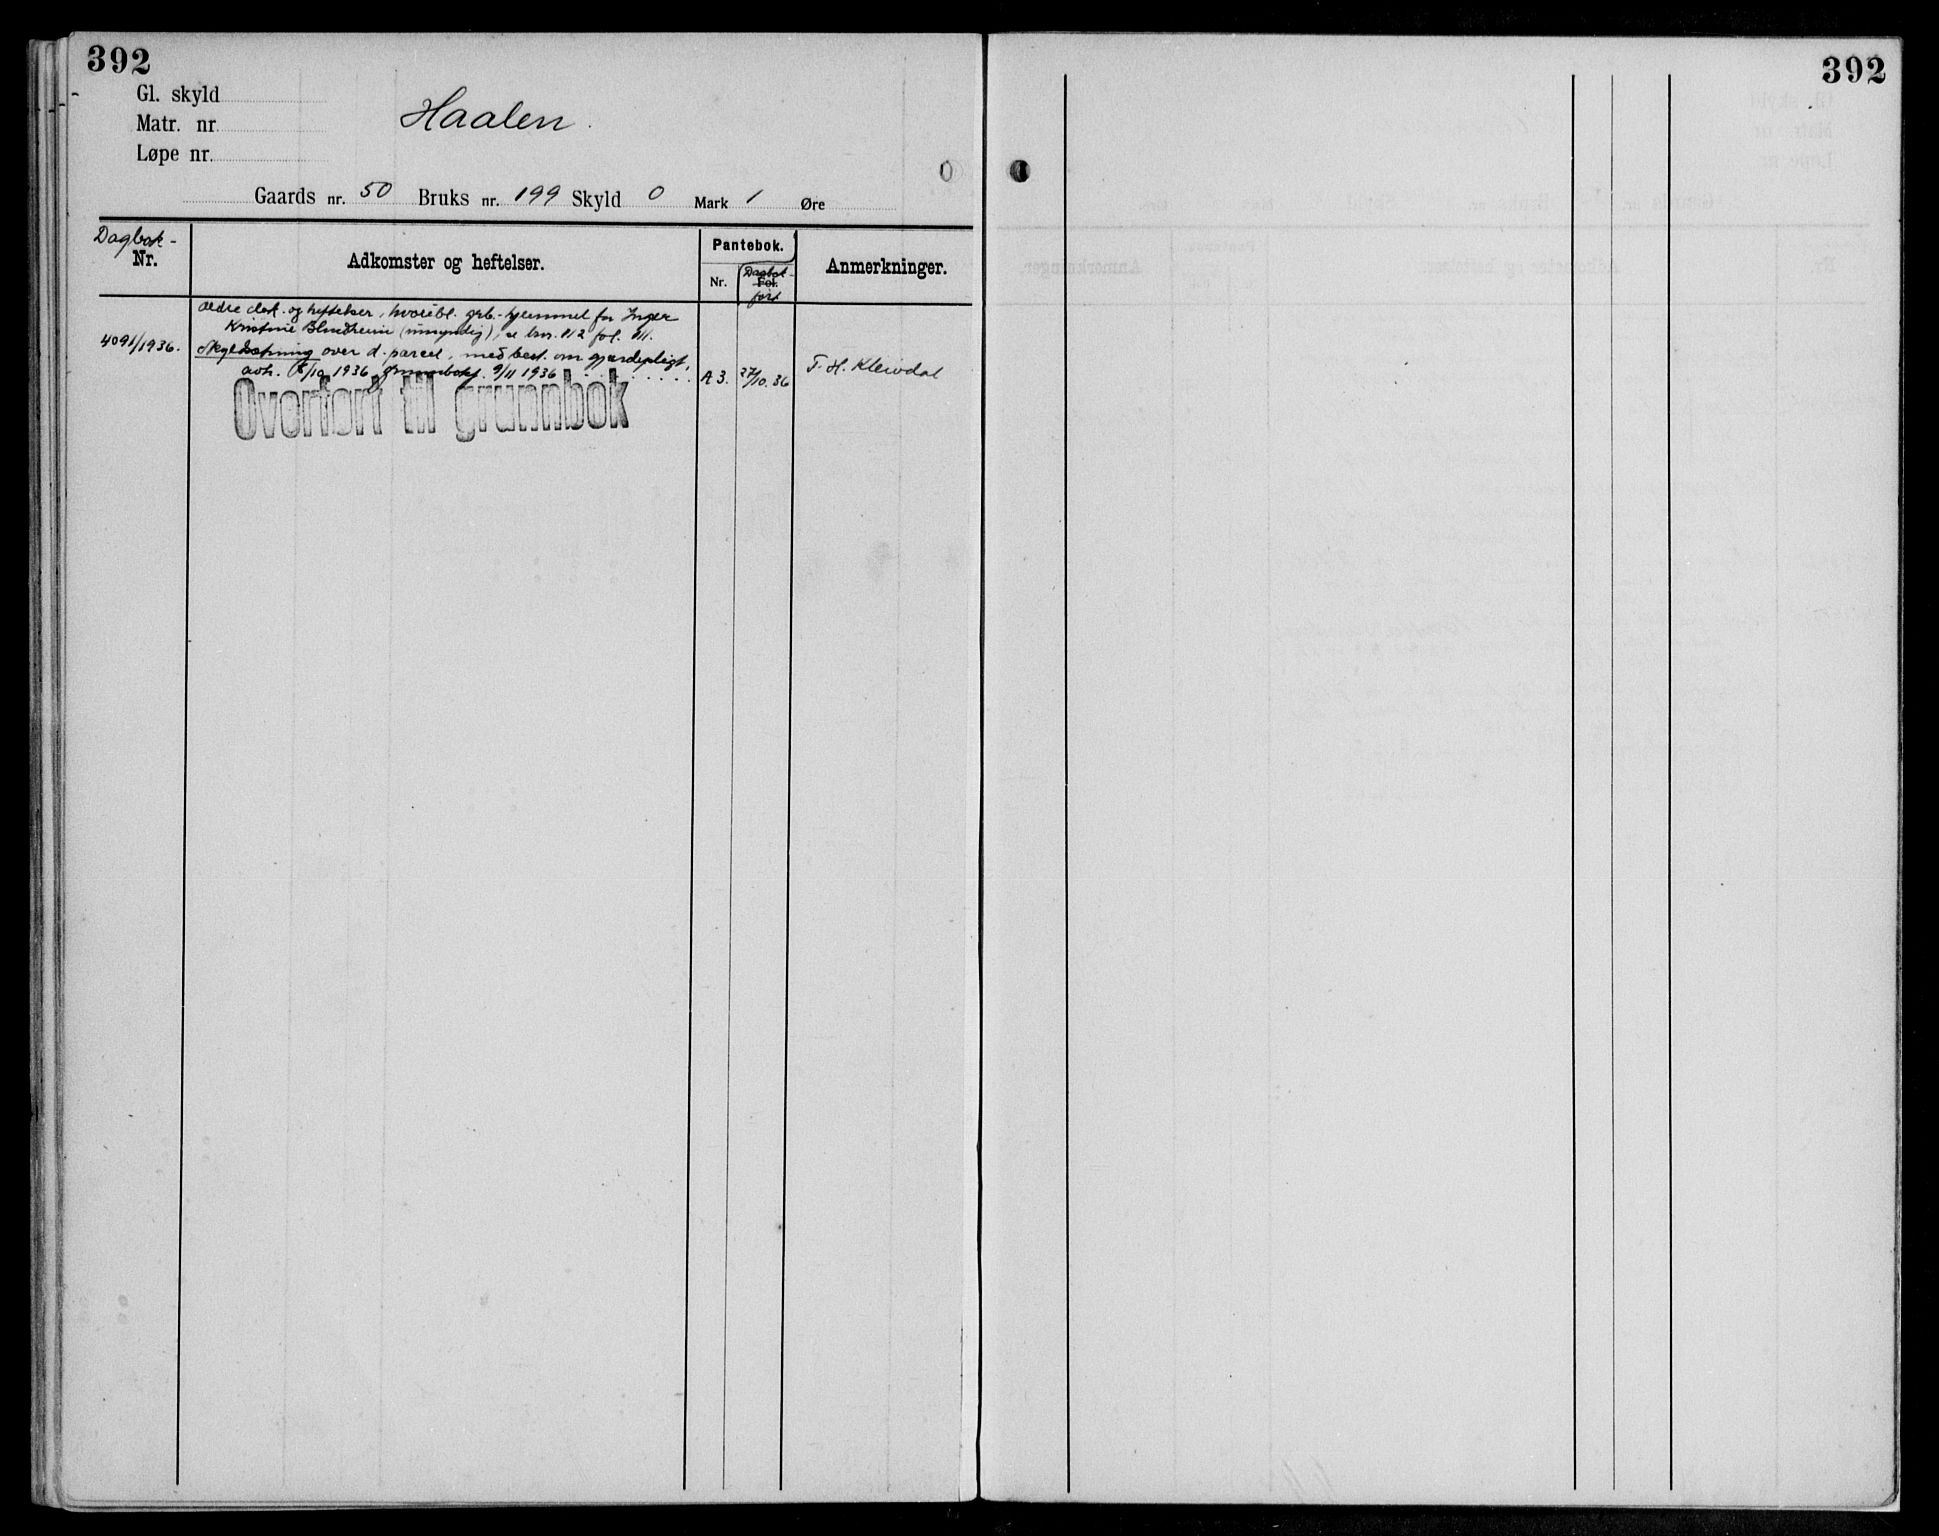 392
392
Gl. skyld
Matr. nr.
Løpe nr.
Haalen.
Gaards nr. 50 Bruks nr. 199 Skyld 0 Mark 1 Øre
Dagbok-
Nr.
Adkomster og heftelser.
Pantebok.
Nr.
Dagbok-
Fol.
ført
Anmerkninger.
Ældre dok. og heftelser, hvoribl. grb.-hjemmel for Inger
Kristine Blindheim (umyndig), se bnr. 112 fol.
4091/1936.
Skyldsetning over d. parcel, med best. om gjerdepligt,
avh. /10 1936, grunnboksf. 9/11 1936 . . . . . . .
A 3.
27/10. 36
T. H. Kleivdal
Overført til grunnbok